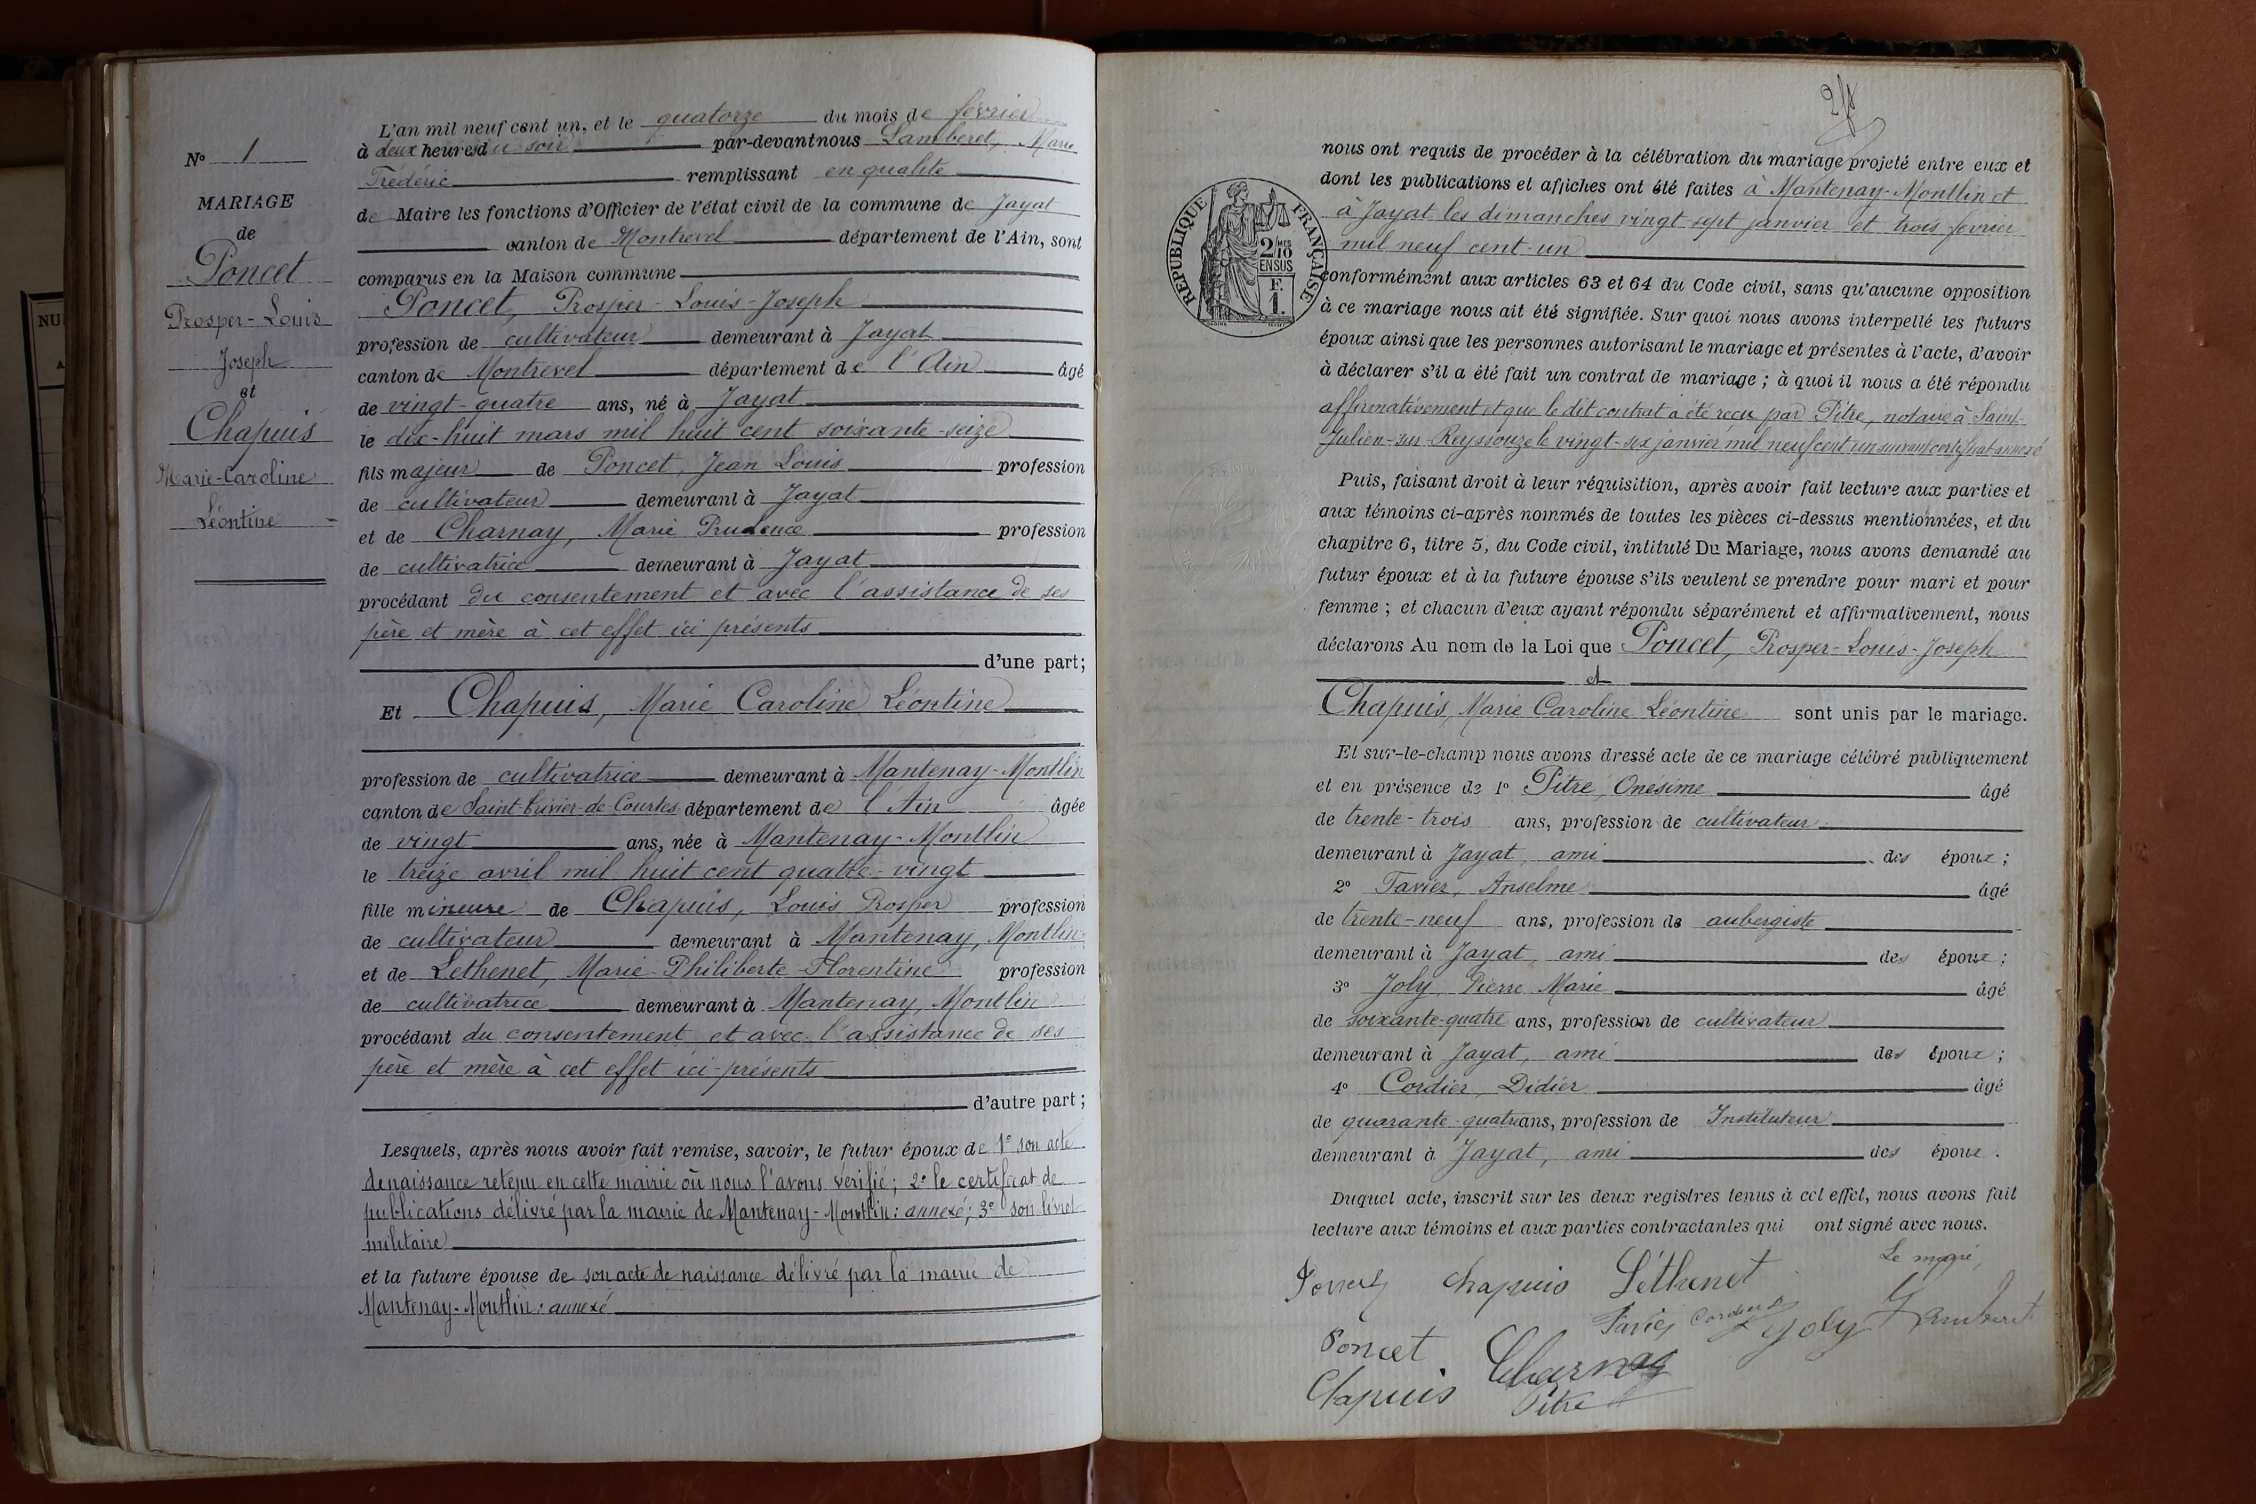 N° 1
MARIAGE
de
Poncet
Prosper-Louis
Joseph
et
Chapuis
Marie-Caroline
Léontine
L'an mil neuf cent un, et le quatorze du mois de février
à deux heures du soir par-devant nous Lamberet, Marie
Frédéric remplissant en qualité
de Maire les fonctions d'Officier de l'état civil de la commune de Jayat
canton de Montrevel département de l'Ain, sont
comparus en la Maison commune
Poncet, Prosper-Louis-Joseph
profession de cultivateur demeurant à Jayat
canton de Montrevel département de l'Ain âgé
de vingt-quatre ans, né à Jayat
le dix-huit mars mil huit cent soixante-seize
fils majeur de Poncet, Jean Louis profession
de cultivateur demeurant à Jayat
et de Charnay, Marie Prudence profession
de cultivatrice demeurant à Jayat
procédant du consentement et avec l'assistance de ses
père et mère à cet effet ici présents
d'une part;
Et Chapuis, Marie Caroline Léontine
profession de cultivatrice demeurant à Mantenay-Montlin
canton de Saint-Trivier-de-Courtes département de l'Ain âgée
de vingt ans, née à Mantenay-Montlin
le treize avril mil huit cent quatre-vingt
fille mineure de Chapuis, Louis Prosper profession
de cultivateur demeurant à Mantenay, Montlin
et de Lethenet, Marie-Philiberte-Florentine profession
de cultivatrice demeurant à Mantenay, Montlin
procédant du consentement et avec l'assistance de ses
père et mère à cet effet ici-présents
d'autre part;
Lesquels, après nous avoir fait remise, savoir, le futur époux de 1° son acte
de naissance retenu en cette mairie où nous l'avons vérifié; 2° le certificat de
publications délivré par la mairie de Mantenay-Montlin: annexé; 3° son livret
militaire
et la future épouse de son acte de naissance délivré par la mairie de
Mantenay-Montlin: annexé
nous ont requis de procéder à la célébration du mariage projeté entre eux et
dont les publications et affiches ont été faites à Mantenay-Montlin et
à Jayat les dimanches vingt sept janvier et trois février
mil neuf cent un
RÉPUBLIQUE FRANÇAISE
2/10 MES
EN SUS
F.
1.
conformément aux articles 63 et 64 du Code civil, sans qu'aucune opposition
à ce mariage nous ait été signifiée. Sur quoi nous avons interpellé les futurs
époux ainsi que les personnes autorisant le mariage et présentes à l'acte, d'avoir
à déclarer s'il a été fait un contrat de mariage; à quoi il nous a été répondu
affirmativement et que le dit contrat a été reçu par Pitre, notaire à Saint-
Julien-sur-Reyssouze le vingt-six janvier mil neuf cent un suivant certificat annexé
Puis, faisant droit à leur réquisition, après avoir fait lecture aux parties et
aux témoins ci-après nommés de toutes les pièces ci-dessus mentionnées, et du
chapitre 6, titre 5, du Code civil, intitulé Du Mariage, nous avons demandé au
futur époux et à la future épouse s'ils veulent se prendre pour mari et pour
femme; et chacun d'eux ayant répondu séparément et affirmativement, nous
déclarons Au nom de la Loi que Poncet, Prosper-Louis-Joseph
et
Chapuis, Marie Caroline Léontine sont unis par le mariage.
Et sur-le-champ nous avons dressé acte de ce mariage célébré publiquement
et en présence de 1° Pitre, Onésime âgé
de trente-trois ans, profession de cultivateur
demeurant à Jayat, ami des époux;
2° Favier, Anselme âgé
de trente-neuf ans, profession de aubergiste
demeurant à Jayat, ami des époux;
3° Joly, Pierre Marie âgé
de soixante-quatre ans, profession de cultivateur
demeurant à Jayat, ami des époux;
4° Cordier, Didier âgé
de quarante-quatre ans, profession de Instituteur
demeurant à Jayat, ami des époux.
Duquel acte, inscrit sur les deux registres tenus à cet effet, nous avons fait
lecture aux témoins et aux parties contractantes qui ont signé avec nous.
Le maire,
Poncet Chapuis Léthenet
Favier Cordier Joly Lamberet
Poncet Charnay
Chapuis Pitre